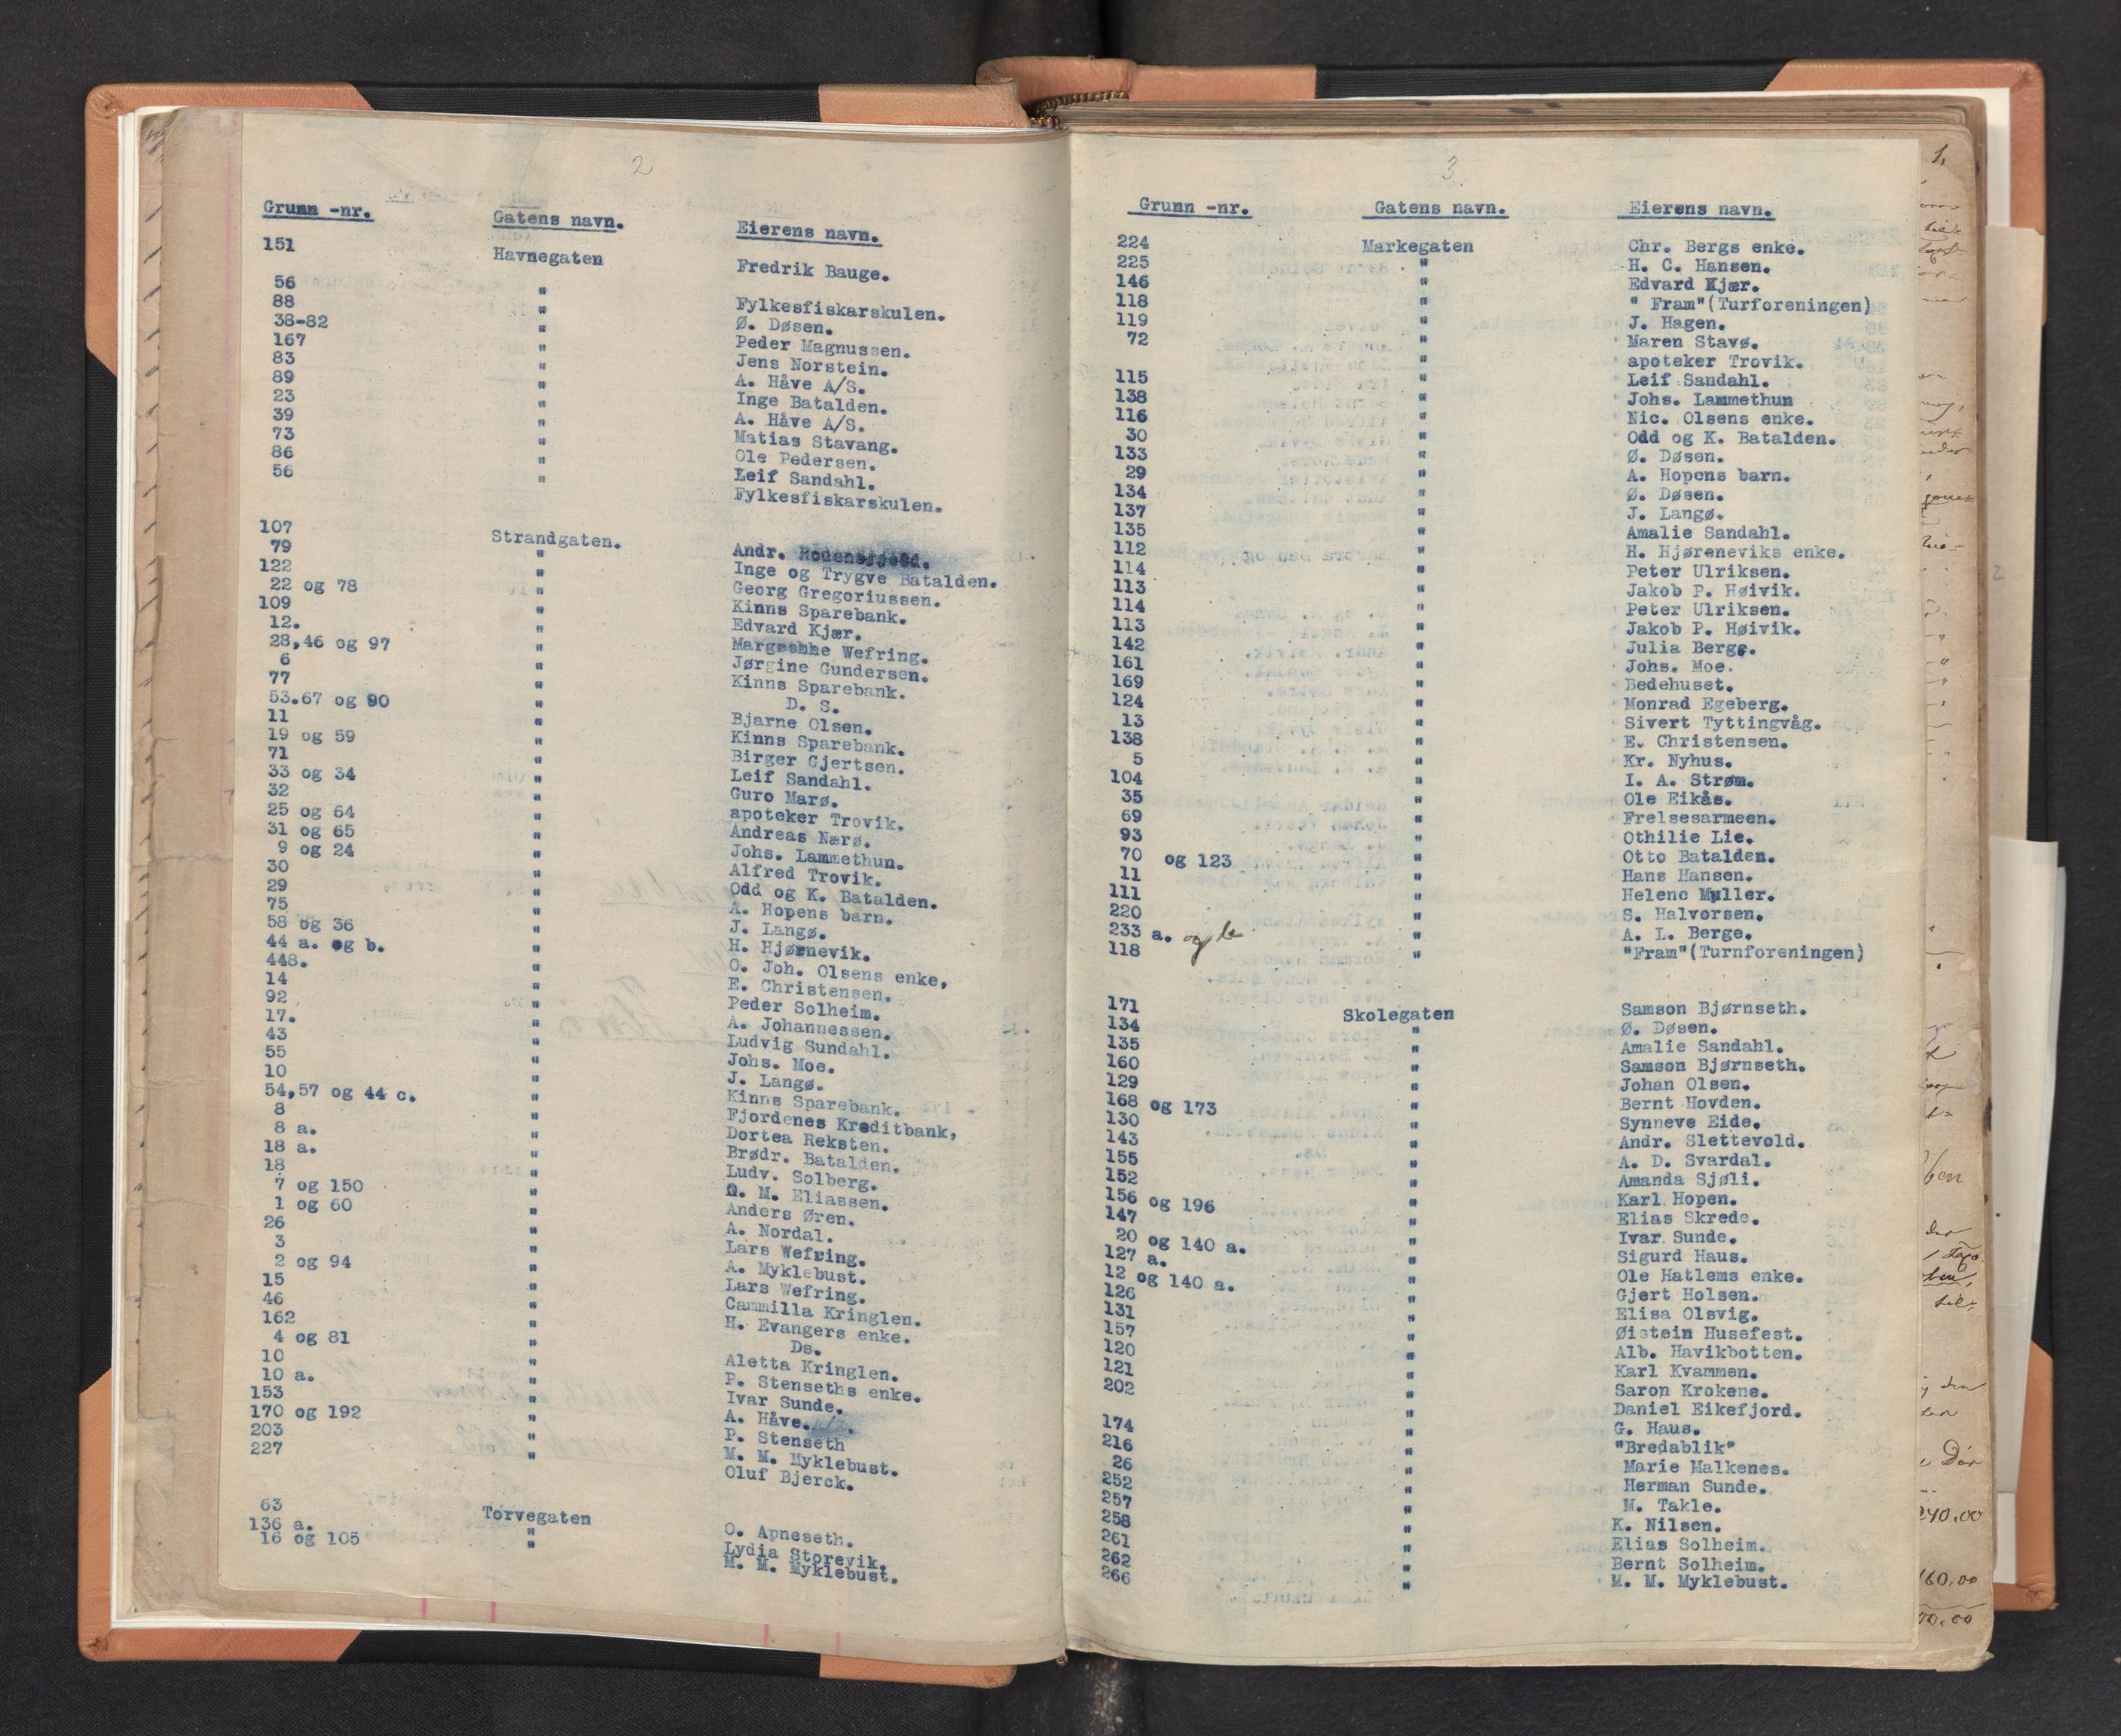 2
Grunn -nr. Gatens navn. Eierens navn.
151 Havnegaten Fredrik Bauge.
56 " Fylkesfiskarskulen.
88 " Ø. Døsen.
38-82 " Peder Magnussen.
167 " Jens Norstein.
83 " A. Håve A/S.
89 " Inge Batalden.
23 " A. Håve A/S.
39 " Matias Stavang.
73 " Ole Pedersen.
86 " Leif Sandahl.
56 " Fylkesfiskarskulen.
107 Strandgaten. Andr.
79 " Inge og Trygve Batalden.
122 " Georg Gregoriussen.
22 og 78 " Kinns Sparebank.
109 " Edvard Kjær.
12. " Wefring.
28,46 og 97 " Jørgine Gundersen.
6 " Kinns Sparebank.
77 " D. S.
53.67 og 90 " Bjarne Olsen.
11 " Kinns Sparebank.
19 og 59 " Birger Gjertsen.
71 " Leif Sandahl.
33 og 34 " Guro Marø.
32 " apoteker Trovik.
25 og 64 " Andreas Nærø.
31 og 65 " Johs. Lammethun.
9 og 24 " Alfred Trovik.
30 " Odd og K. Batalden.
29 " A. Hopens barn.
75 " J. Langø.
58 og 36 " H. Hjørnevik.
44 a. og b. " O. Joh. Olsens enke,
448. " E. Christensen.
14 " Peder Solheim.
92 " A. Johannessen.
17. " Ludvig Sundahl.
43 " Johs. Moe.
55 " J. Langø.
10 " Kinns Sparebank.
54,57 og 44 c. " Fjordenes Kreditbank,
8 " Dortea Reksten.
8 a. " Brødr. Batalden.
18 a. " Ludv. Solberg.
18 " M. Eliassen.
7 og 150 " Anders Øren.
1 og 60 " A. Nordal.
26 " Lars Wefring.
3 " A. Myklebust.
2 og 94 " Lars Wefring.
15 " Cammilla Kringlen.
46 " H. Evangers enke.
162 " Ds.
4 og 81 " Aletta Kringlen.
10 " P. Stenseths enke.
10 a. " Ivar Sunde.
153 " A. Håve.
170 og 192 " P. Stenseth
203 " M. M. Myklebust.
227 " Oluf Bjerck.
63 Torvegaten O. Apneseth.
136 a. " Lydia Storevik.
16 og 105 " M. M. Myklebust.
3
Grunn -nr. Gatens navn. Eierens navn.
224 Markegaten Chr. Bergs enke.
225 " H. C. Hansen.
146 " Edvard Kjær.
118 " " Fram"(Turforeningen)
119 " J. Hagen.
72 " Maren Stavø.
" apoteker Trovik.
115 " Leif Sandahl.
138 " Johs. Lammethun
116 " Nic. Olsens enke.
30 " Odd og K. Batalden.
133 " Ø. Døsen.
29 " A. Hopens barn.
134 " Ø. Døsen.
137 " J. Langø.
135 " Amalie Sandahl.
112 " H. Hjøreneviks enke.
114 " Peter Ulriksen.
113 " Jakob P. Høivik.
114 " Peter Ulriksen.
113 " Jakob P. Høivik.
142 " Julia Berge.
161 " Johs. Moe.
169 " Bedehuset.
124 " Monrad Egeberg.
13 " Sivert Tyttingvåg.
138 " E. Christensen.
5 " Kr. Nyhus.
104 " I. A. Strøm.
35 " Ole Eikås.
69 " Frelsesarmeen.
93 " Othilie Lie.
70 og 123 " Otto Batalden.
11 " Hans Hansen.
111 " Helene Myller.
220 " S. Halvorsen.
233 a. og b " A. L. Berge.
118 " "Fram"(Turnforeningen)
171 Skolegaten Samson Bjørnseth.
134 " Ø. Døsen.
135 " Amalie Sandahl.
160 " Samson Bjørnseth.
129 " Johan Olsen.
168 og 173 " Bernt Hovden.
130 " Synneve Eide.
143 " Andr. Slettevold.
155 " A. D. Svardal.
152 " Amanda Sjøli.
156 og 196 " Karl Hopen.
147 " Elias Skrede.
20 og 140 a. " Ivar Sunde.
127 a. " Sigurd Haus.
12 og 140 a. " Ole Hatlems enke.
126 " Gjert Holsen.
131 " Elisa Olsvig.
157 " Øistein Husefest.
120 " Alb. Havikbotten.
121 " Karl Kvammen.
202 " Saron Krokene.
" Daniel Eikefjord.
174 " G. Haus.
216 " "Bredablik"
26 " Marie Malkenes.
252 " Herman Sunde.
257 " M. Takle.
258 " K. Nilsen.
261 " Elias Solheim.
262 " Bernt Solheim.
266 " M. M. Myklebust.